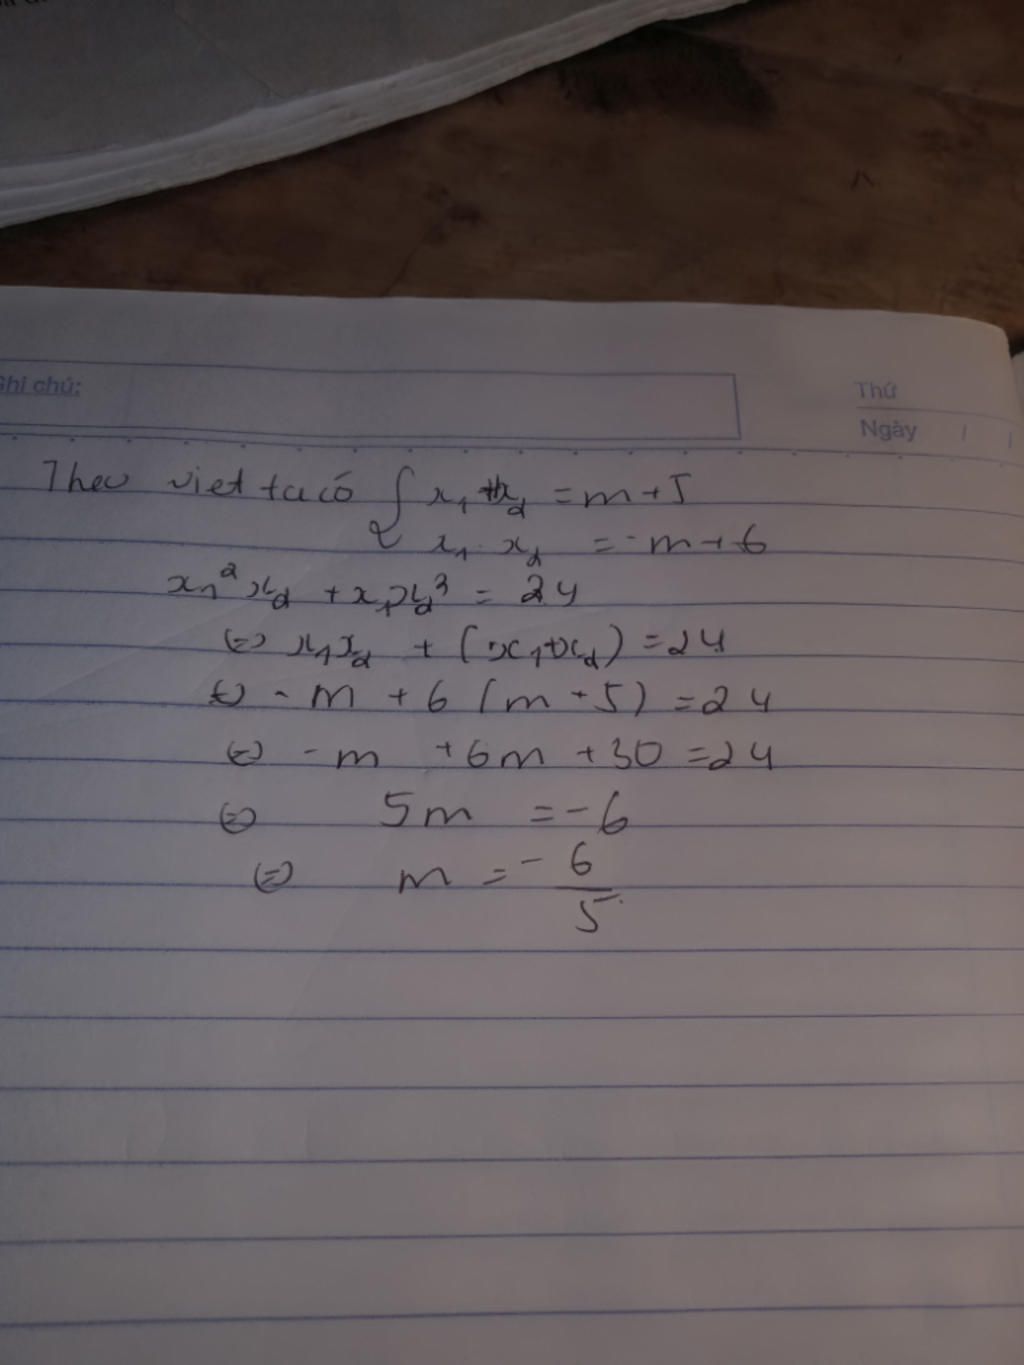 Ghi chú:
Thứ
Ngày / /
Theo viet ta có { x₁ + x₂ = m + 5
x₁ . x₂ = -m + 6
x₁² x₂ + x₁x₂³ = 24
⇔ x₁x₂ + (x₁+x₂) = 24
⇔ - m + 6 (m + 5) = 24
⇔ - m + 6m + 30 = 24
⇔ 5m = - 6
⇔ m = - 6/5